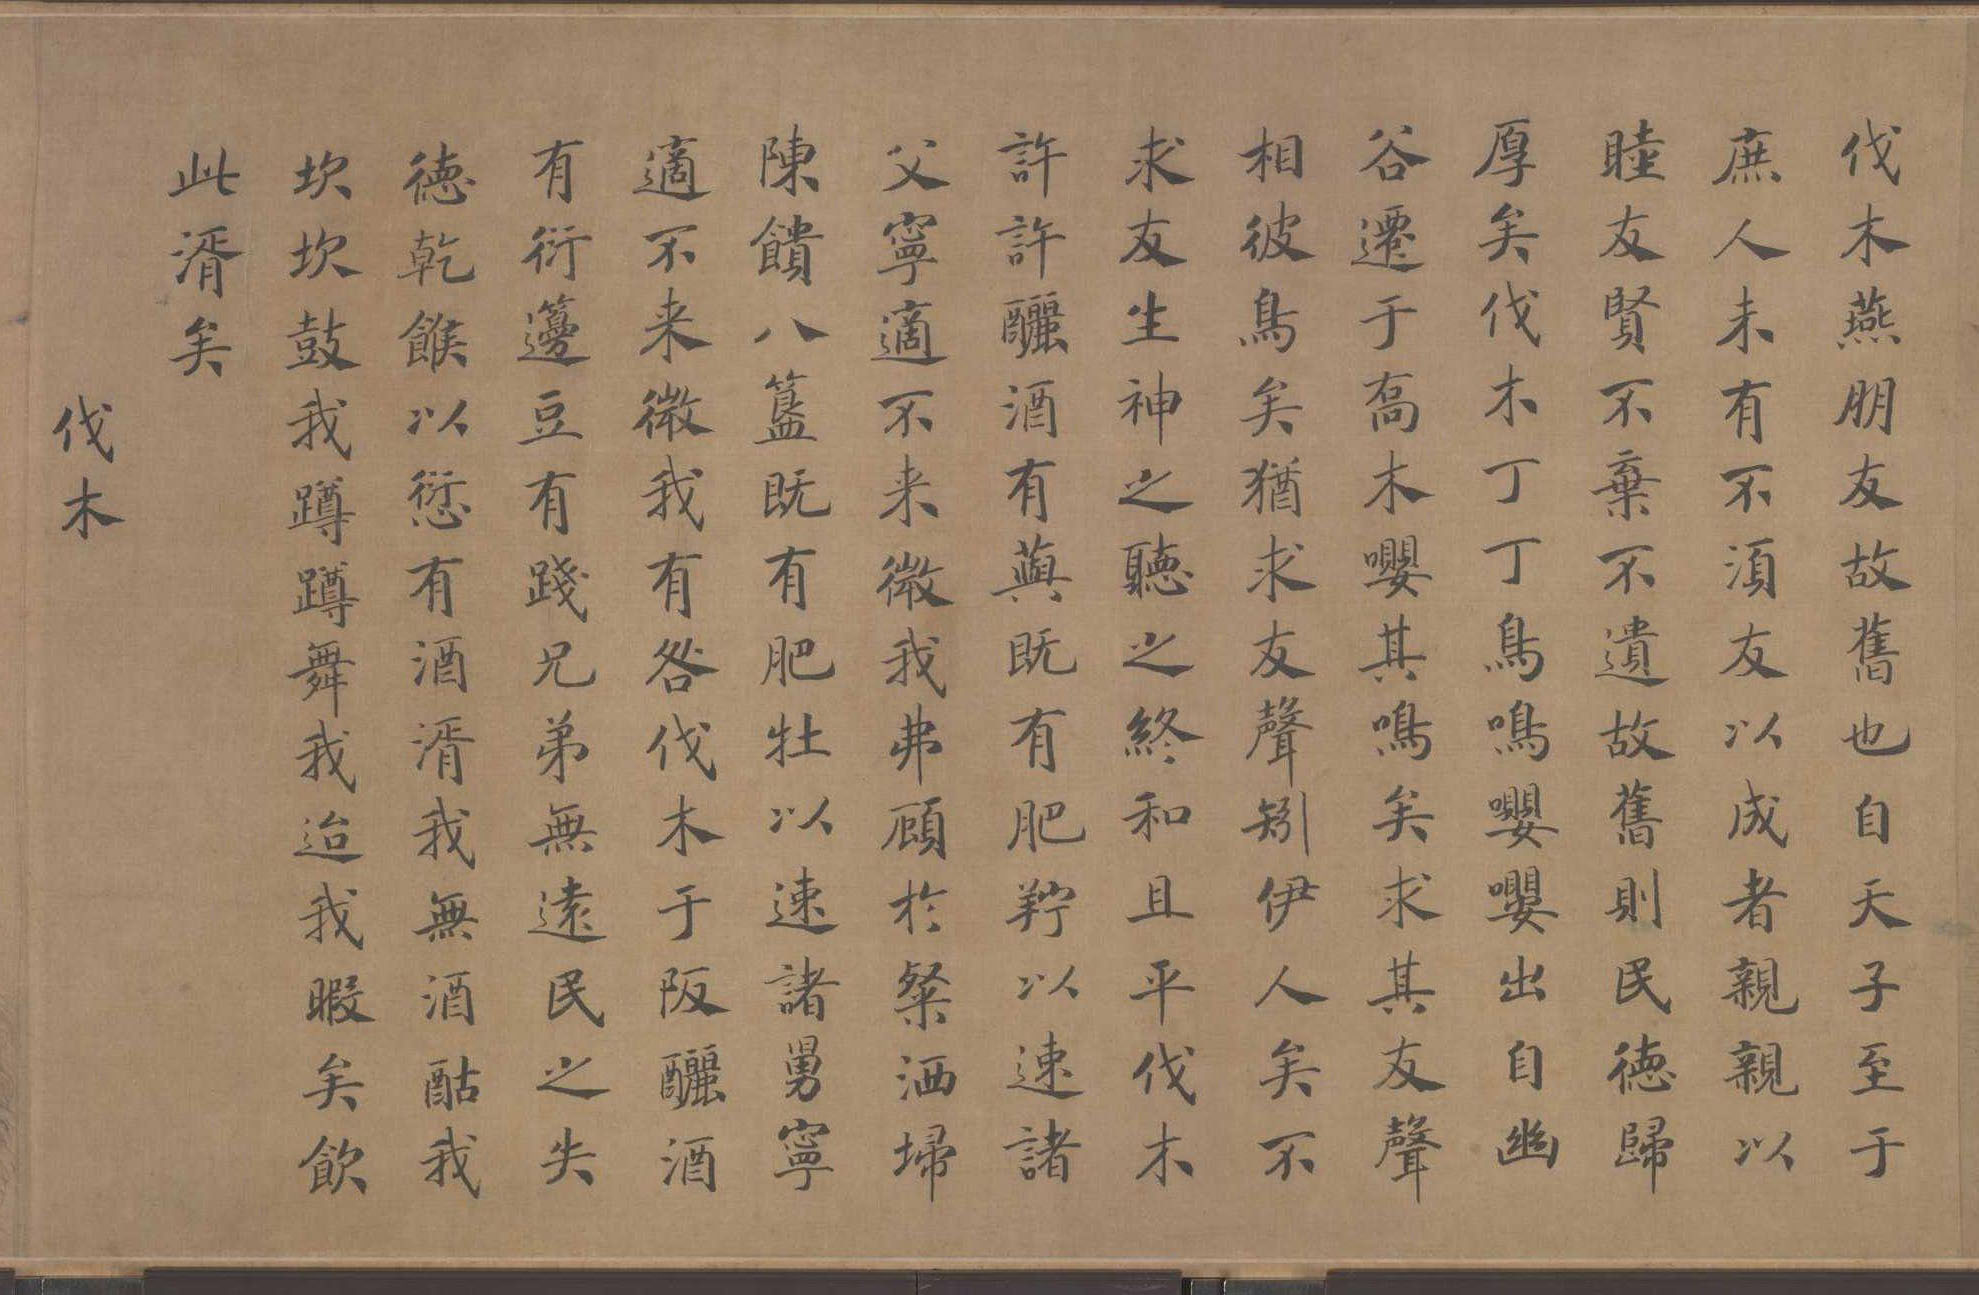 伐木燕朋友故舊也自天子至于
庶人未有不須友以成者親親以
睦友賢不棄不遺故舊則民德歸
厚矣伐木丁丁鳥鳴嚶嚶出自幽
谷遷于喬木嚶其鳴矣求其友聲
相彼鳥矣猶求友聲矧伊人矣不
求友生神之聽之終和且平伐木
許許釃酒有藇既有肥羜以速諸
父寧適不来微我弗顧於粲洒埽
陳饋八簋既有肥牡以速諸舅寧
適不来微我有咎伐木于阪釃酒
有衍籩豆有踐兄弟無遠民之失
德乾餱以愆有酒湑我無酒酤我
坎坎鼓我蹲蹲舞我迨我暇矣飲
此湑矣
伐木